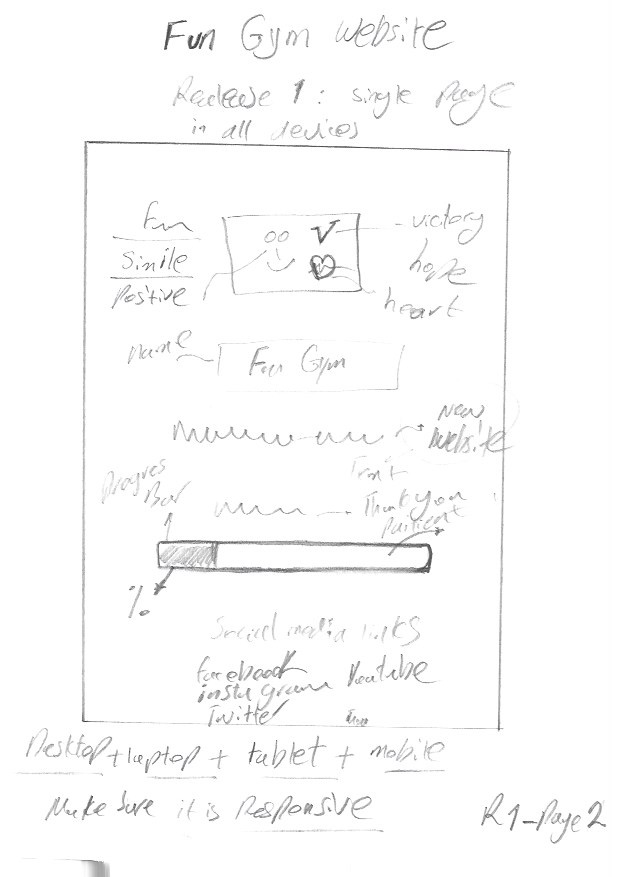 Fun Gym website
Release 1: single page
in all devices
Fun
Simile
Positive
victory
hope
heart
name
Fun Gym
New
Website
Progres
Bar
Thank you
%
Social media links
facebook
instagram Youtube
Twitter
Desktop + laptop + tablet + mobile
Make sure it is Responsive
R1-Page2